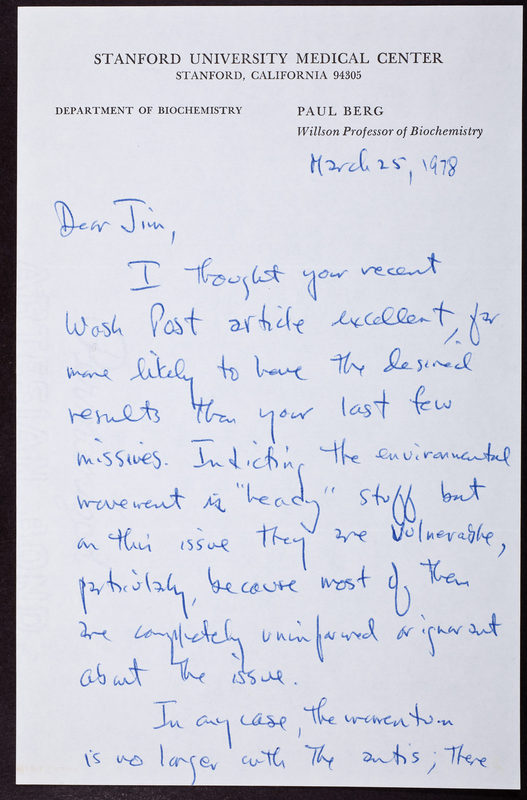 STANFORD UNIVERSITY MEDICAL CENTER
STANFORD, CALIFORNIA 94305
DEPARTMENT OF BIOCHEMISTRY
PAUL BERG
Willson Professor of Biochemistry
March 25, 1978
Dear Jim,
I thought your recent
Wash Post article excellent, far
more likely to have the desired
results than your last few
missives. Indicting the environmental
movement is "heady" stuff but
on this issue they are vulnerable,
particularly, because most of them
are completely uninformed or ignorant
about the issue.
In any case, the momentum
is no longer with the antis; there